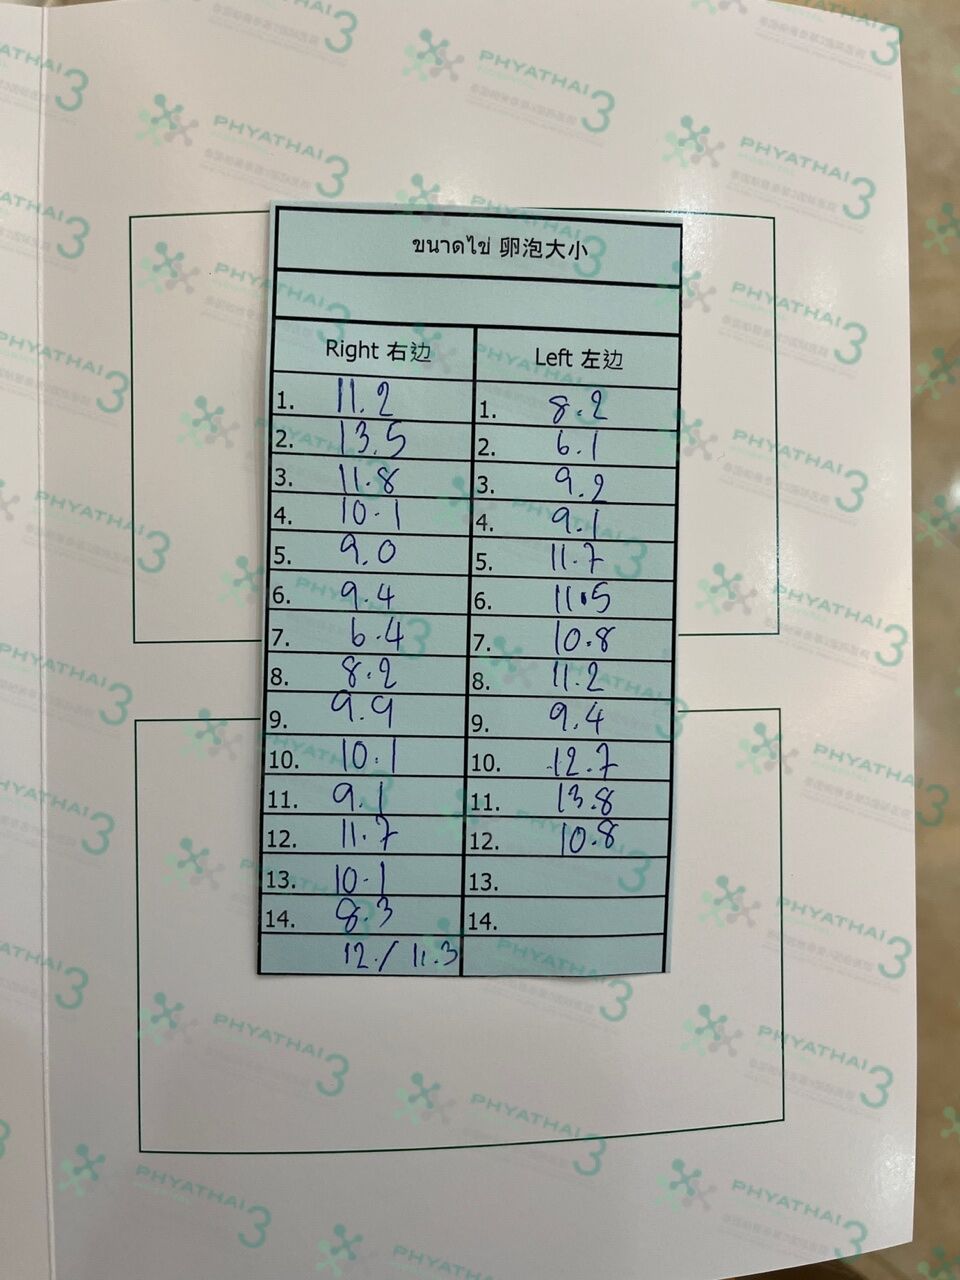 ขนาดไข่ 卵泡大小
Right 右边 Left 左边
1. 11.2 1. 8.2
2. 13.5 2. 6.1
3. 11.8 3. 9.2
4. 10.1 4. 9.1
5. 9.0 5. 11.7
6. 9.4 6. 11.5
7. 6.4 7. 10.8
8. 8.2 8. 11.2
9. 9.9 9. 9.4
10. 10.1 10. 12.7
11. 9.1 11. 13.8
12. 11.7 12. 10.8
13. 10.1 13.
14. 8.3 14.
12./ 11.3
PHYATHAI 3